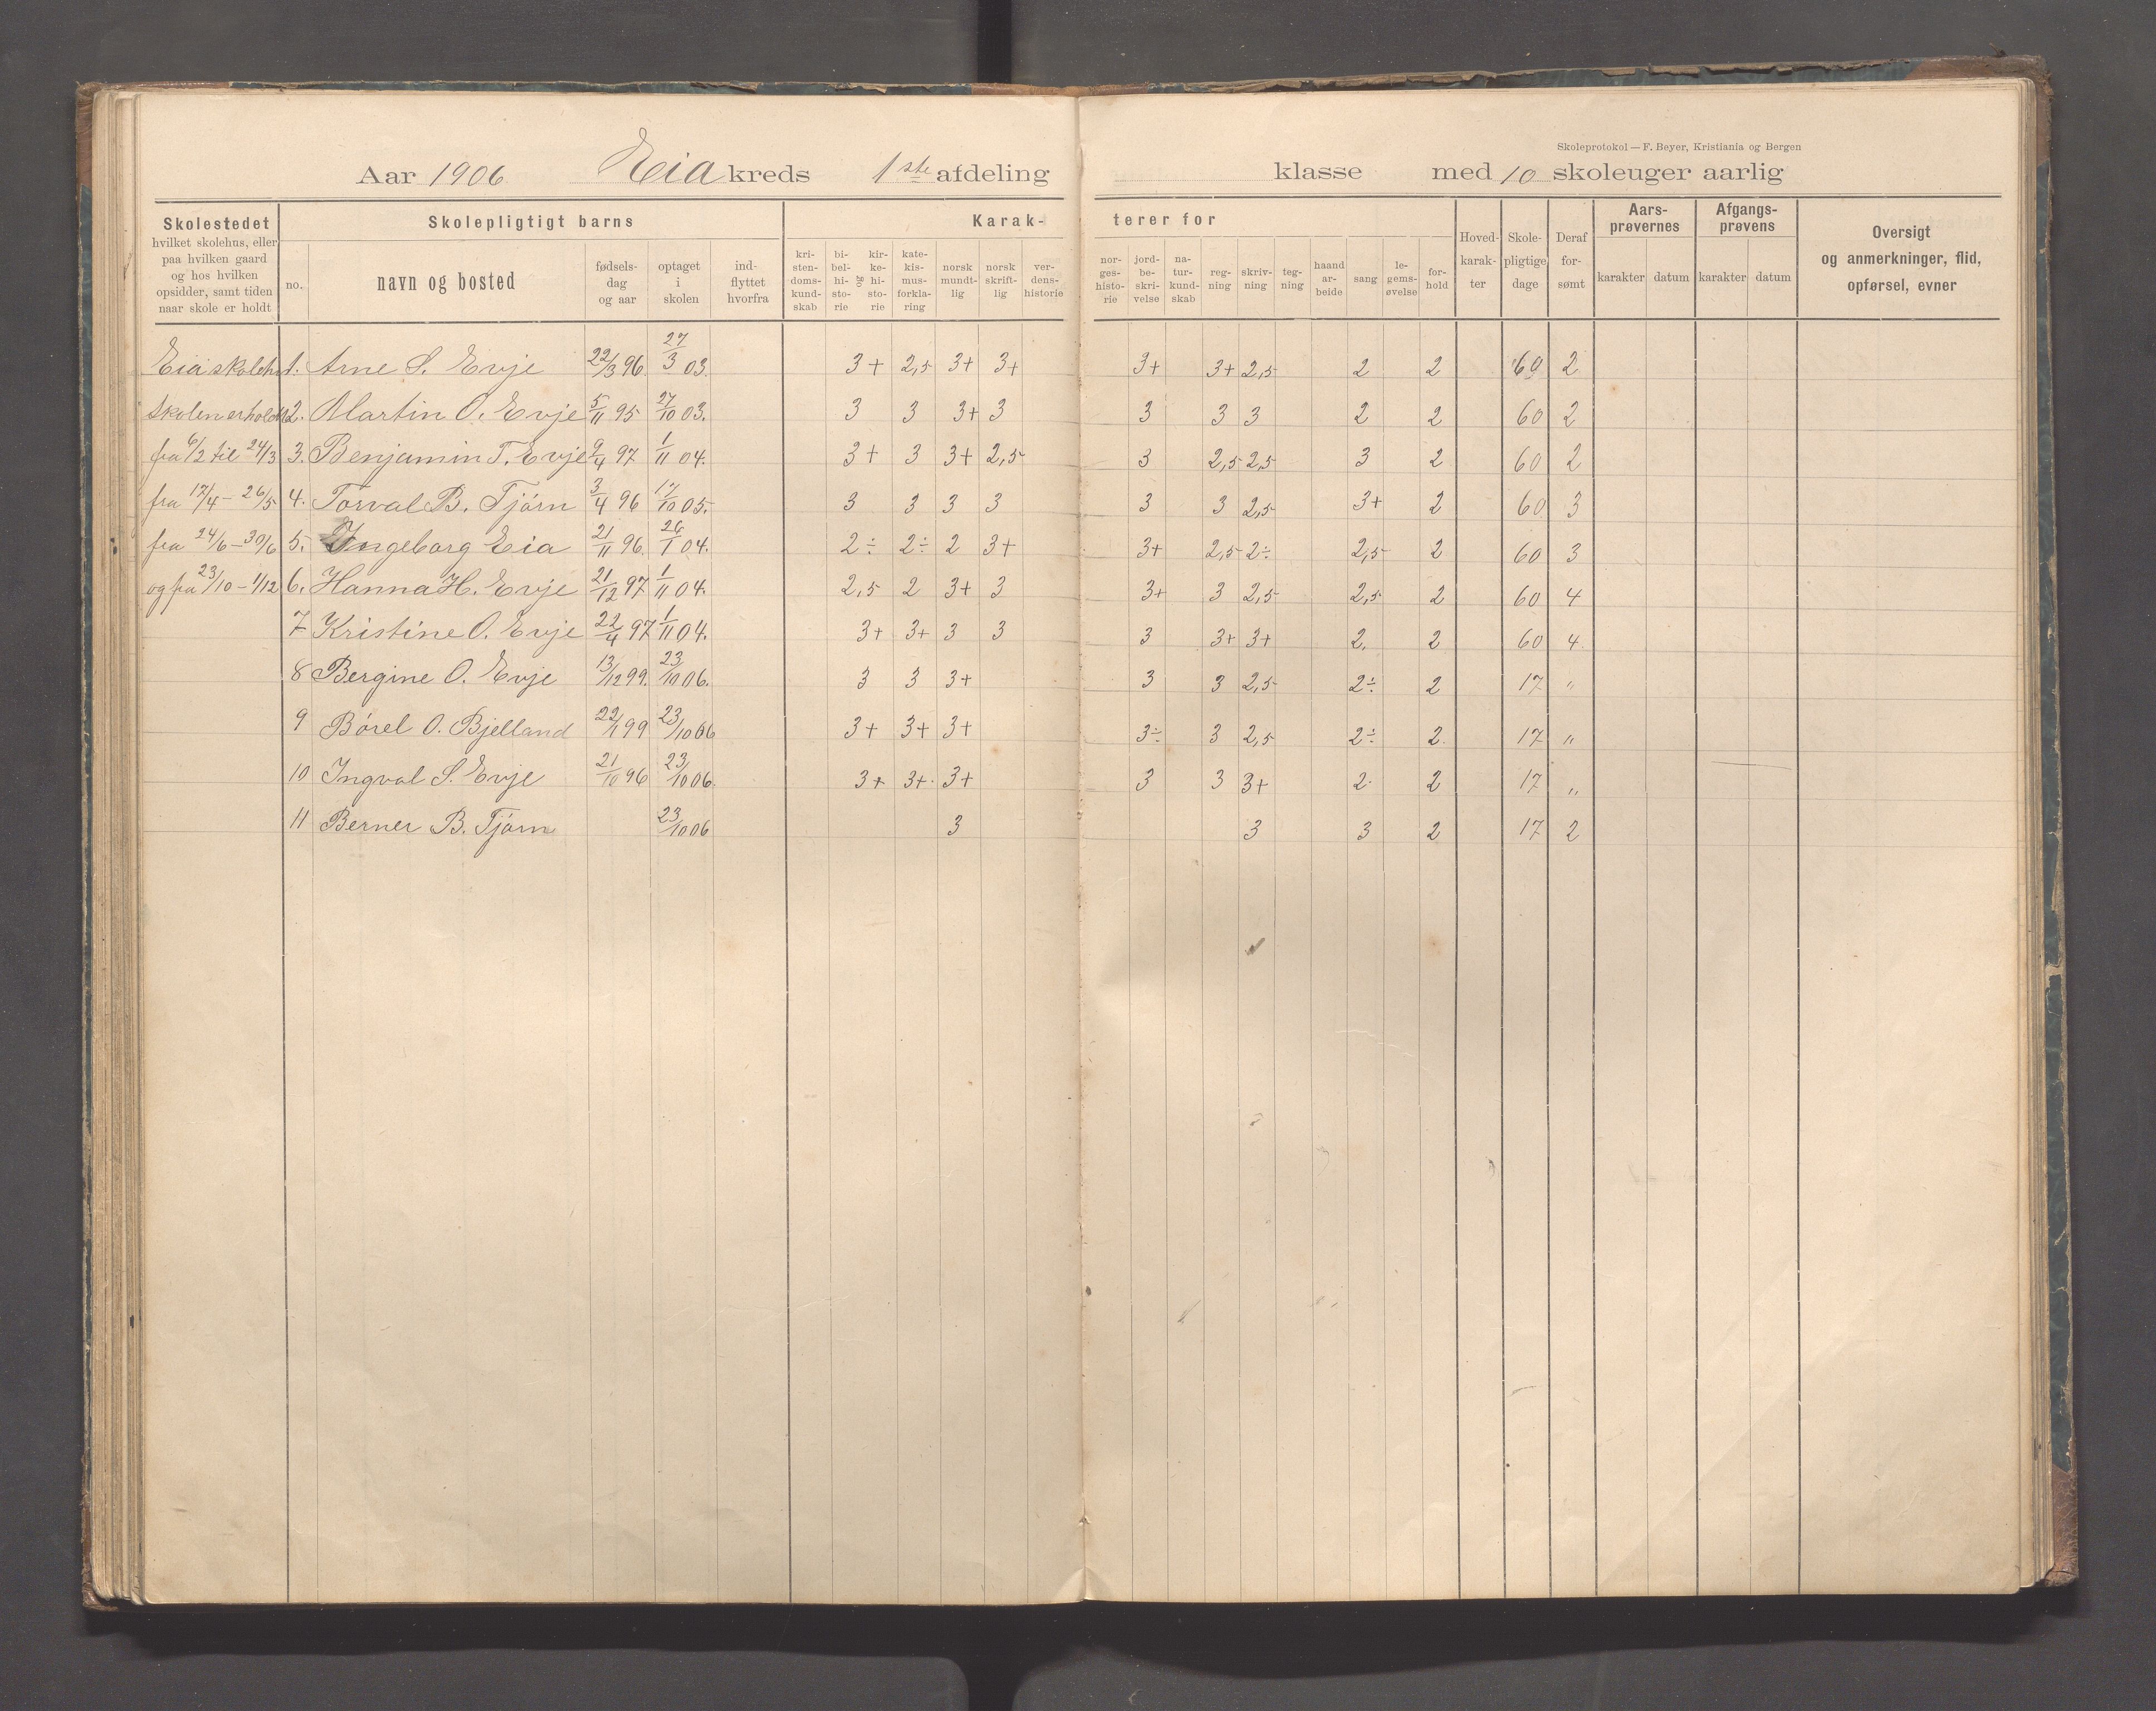 Skoleprotokol — F. Beyer, Kristiania og Bergen
Aar 1906 Eia kreds 1ste afdeling klasse med 10 skoleuger aarlig
Skolestedet hvilket skolehus, eller paa hvilken gaard og hos hvilken opsidder, samt tiden naar skole er holdt
Skolepligtigt barns
no. navn og bosted fødselsdag og aar optaget i skolen indflyttet hvorfra
Karakterer for
kristendomskundskab bibelhistorie og kirkehistorie katekismusforklaring norsk mundtlig norsk skriftlig verdenshistorie
norgeshistorie jordbeskrivelse naturkundskab regning skrivning tegning haandarbeide sang legemsøvelse forhold
Hovedkarakter Skolepligtige dage Deraf forsømt
Aarsprøvernes karakter datum Afgangsprøvens karakter datum
Oversigt og anmerkninger, flid, opførsel, evner
Eia skolehus 1. Arne S. Evje 22/3 96. 27/3 03. 3+ 2,5 3+ 3+ 3+ 3+ 2,5 2 2 60 2
skolen er holdt 2. Martin O. Evje 5/11 95 27/10 03. 3 3 3+ 3 3 3 3 2 2 60 2
fra 6/2 til 24/3 3. Benjamin T. Evje 9/4 97 1/11 04. 3+ 3 3+ 2,5 3 2,5 2,5 3 2 60 2
fra 17/4 - 26/5 4. Torval B. Tjørn 3/4 96 17/10 05. 3 3 3 3 3 3 2,5 3+ 2 60 3
fra 24/6 - 30/6 5. Ingeborg Eia 21/11 96. 26/1 04. 2÷ 2÷ 2 3+ 3+ 2,5 2÷ 2,5 2 60 3
og fra 23/10 - 1/12 6. Hanna H. Evje 21/12 97 1/11 04. 2,5 2 3+ 3 3+ 3 2,5 2,5 2 60 4
7 Kristine O. Evje 22/4 97 1/11 04. 3+ 3+ 3 3 3 3+ 3+ 2. 2 60 4.
8 Bergine O. Evje 13/12 99. 23/10 06. 3 3 3+ 3 3 2,5 2÷ 2 17 "
9 Børel O. Bjelland 22/1 99 23/10 06 3+ 3+ 3+ 3÷ 3 2,5 2÷ 2. 17 "
10 Ingval S. Evje 21/10 96 23/10 06. 3+ 3+ 3+ 3 3 3+ 2 2 17 "
11 Berner B. Tjørn 23/10 06 3 3 3 2 17 2